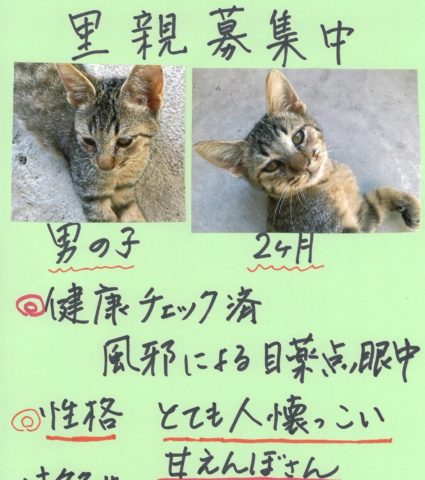 里親募集中
男の子 2ヶ月
◎健康チェック済
風邪による目薬点眼中
◎性格 とても人懐っこい
甘えんぼさん